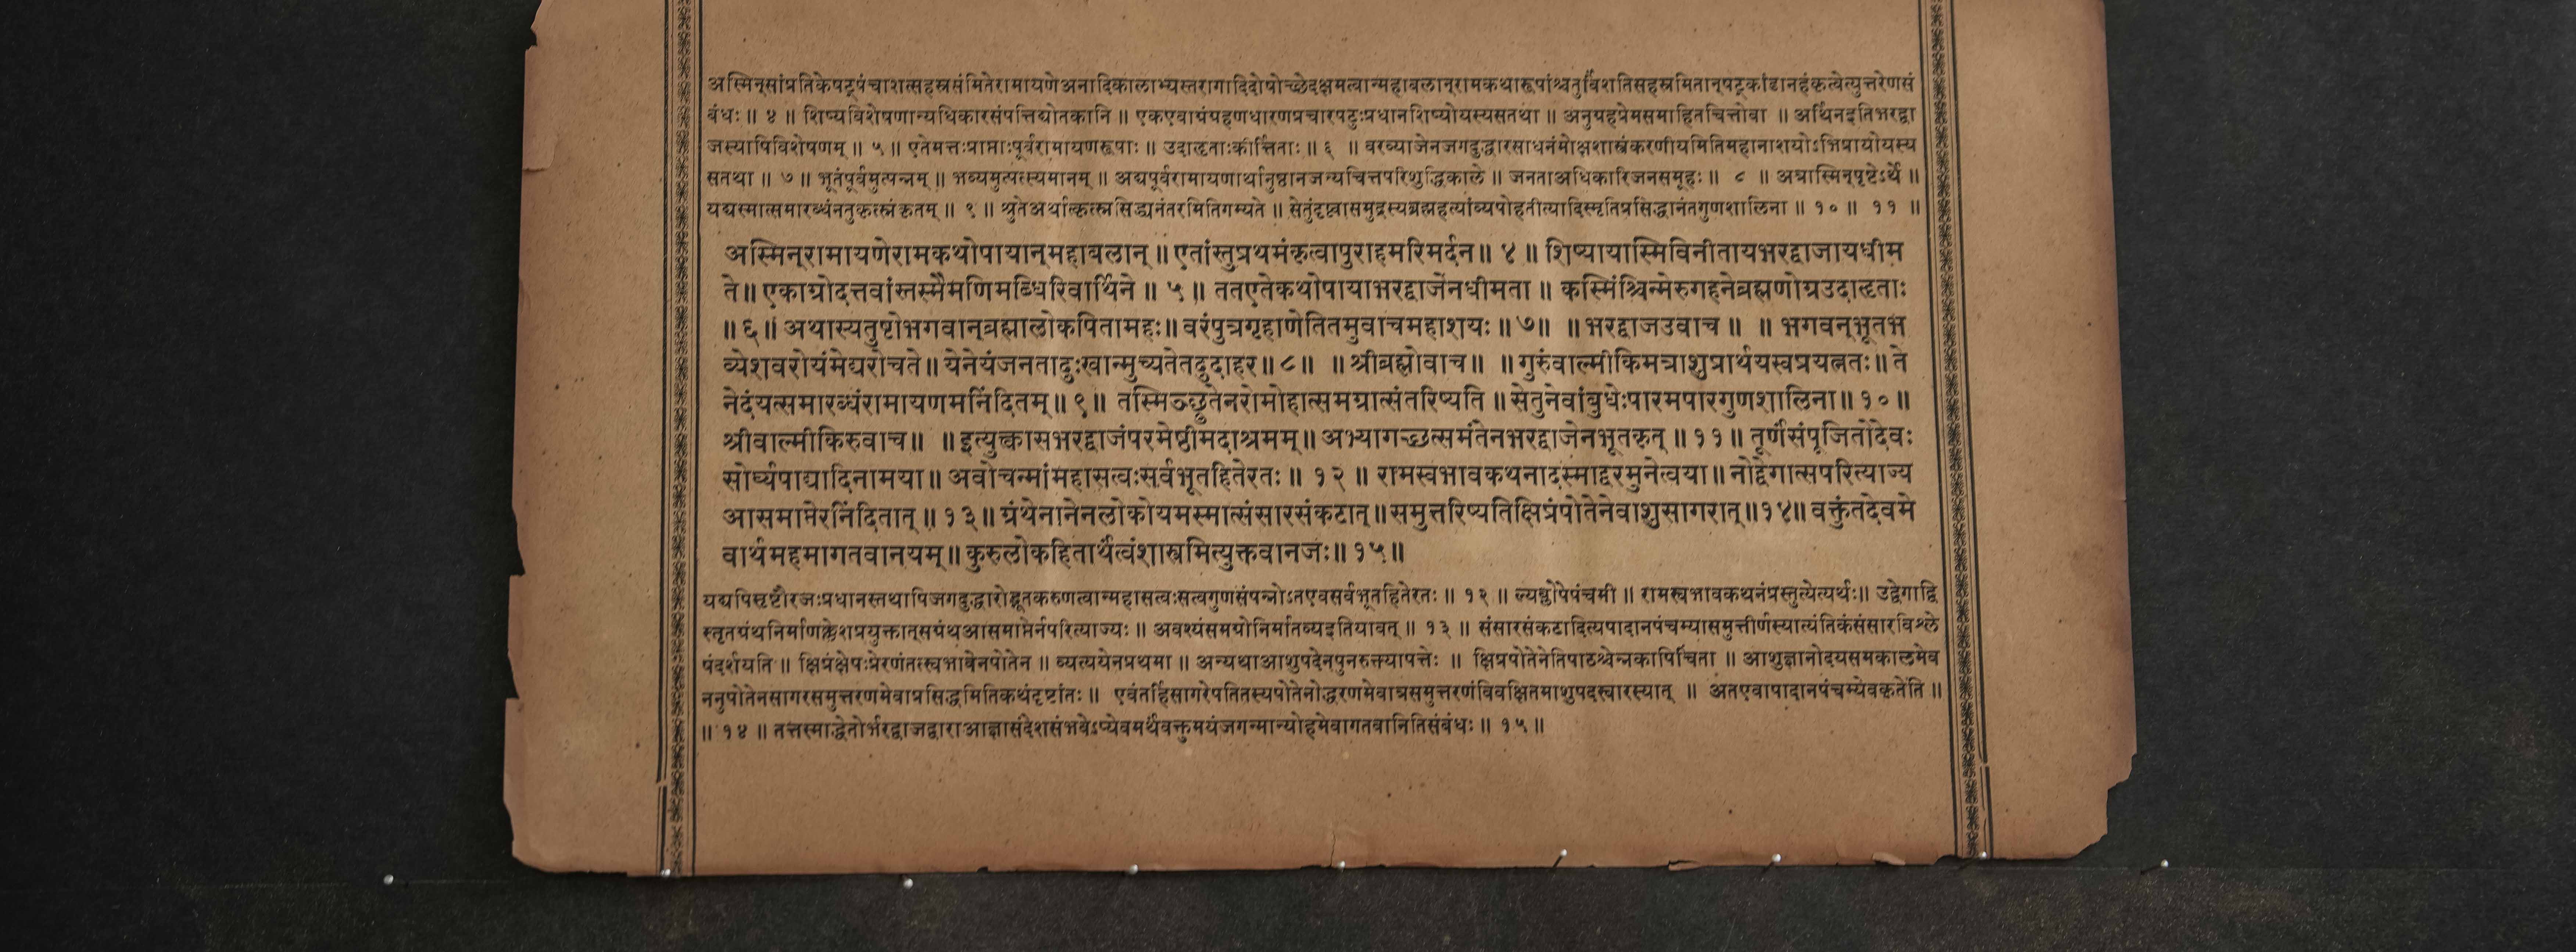 अस्मिन्सांप्रतिकेषट्पंचाशत्सहस्रसंमितेरामायणेअनादिकालाभ्यस्तरागादिदोषोच्छेदक्षमत्वान्महाबलान्रामकथारूपांश्चतुर्विंशतिसहस्रमितान्षट्कांडानहंकृत्वेत्युत्तरेणसं
बंधः॥ ४ ॥ शिष्यविशेषणान्यधिकारसंपत्तिद्योतकानि ॥ एकएवाग्रंथग्रहणधारणप्रचारपटुःप्रधानशिष्योयस्यसतथा ॥ अनुग्रहप्रेमसमाहितचित्तोवा ॥ अर्थिनइतिभरद्वा
जस्यापिविशेषणम् ॥ ५ ॥ एतेमत्तःप्राप्ताःपूर्वरामायणरूपाः ॥ उदाहृताःकीर्त्तिताः॥ ६ ॥ वरव्याजेनजगदुद्धारसाधनंमोक्षशास्त्रंकरणीयमितिमहानाशयोऽभिप्रायोयस्य
सतथा ॥ ७ ॥ भूतंपूर्वमुत्पन्नम् ॥ भव्यमुत्पत्स्यमानम् ॥ अद्यपूर्वरामायणार्थानुष्ठानजन्यचित्तपरिशुद्धिकाले ॥ जनताअधिकारिजनसमूहः॥ ८ ॥ अत्रास्मिन्पृष्टेऽर्थे ॥
यद्यस्मात्समारब्धंनतुकृत्स्नंकृतम् ॥ ९ ॥ श्रुतेअर्थात्कृत्स्नसिद्ध्यनंतरमितिगम्यते ॥ सेतुंदृष्ट्वासमुद्रस्यब्रह्महत्यांव्यपोहतीत्यादिस्मृतिप्रसिद्धानंतगुणशालिना ॥ १० ॥ ११ ॥
अस्मिन्रामायणेरामकथोपायान्महाबलान् ॥ एतांस्तुप्रथमंकृत्वापुराहमरिमर्दन॥ ४ ॥ शिष्यायास्मिविनीतायभरद्वाजायधीम
ते॥ एकाग्रोदत्तवांस्तस्मैमणिमब्धिरिवार्थिने ॥ ५ ॥ ततएतेकथोपायाभरद्वाजेनधीमता ॥ कस्मिंश्चिन्मेरुगहनेब्रह्मणोग्रउदाहृताः
॥ ६ ॥ अथास्यतुष्टोभगवान्ब्रह्मालोकपितामहः॥ वरंपुत्रगृहाणेतितमुवाचमहाशयः॥ ७॥ ॥ भरद्वाजउवाच ॥ ॥ भगवन्भूतभ
व्येशवरोयंमेद्यरोचते॥ येनेयंजनतादुःखान्मुच्यतेतदुदाहर॥ ८॥ ॥ श्रीब्रह्मोवाच॥ ॥ गुरुंवाल्मीकिमत्राशुप्रार्थयस्वप्रयत्नतः॥ ते
नेदंयत्समारब्धंरामायणमनिंदितम्॥ ९॥ तस्मिञ्छ्रुतेनरोमोहात्समग्रात्संतरिष्यति ॥ सेतुनेवांबुधेःपारमपारगुणशालिना॥ १०॥
श्रीवाल्मीकिरुवाच॥ ॥ इत्युक्त्वासभरद्वाजंपरमेष्ठीमदाश्रमम्॥ अभ्यागच्छत्समंतेनभरद्वाजेनभूतकृत् ॥ ११॥ तूर्णंसंपूजितोदेवः
सोर्घ्यपाद्यादिनामया॥ अवोचन्मांमहासत्वःसर्वभूतहितेरतः॥ १२ ॥ रामस्वभावकथनादस्माद्वरमुनेत्वया॥ नोद्वेगात्सपरित्याज्य
आसमाप्तेरनिंदितात् ॥ १३॥ ग्रंथेनानेनलोकोयमस्मात्संसारसंकटात्॥ समुत्तरिष्यतिक्षिप्रंपोतेनेवाशुसागरात्॥१४॥ वक्तुंतदेवमे
वार्थमहमागतवानयम्॥ कुरुलोकहितार्थंत्वंशास्त्रमित्युक्तवानजः॥ १५॥
यद्यपिसृष्टौरजःप्रधानस्तथापिजगदुद्धारोद्भूतकरुणत्वान्महासत्वःसत्वगुणसंपन्नोऽतएवसर्वभूतहितेरतः॥ १२ ॥ ल्यब्लोपेपंचमी ॥ रामस्वभावकथनंप्रस्तुत्येत्यर्थः॥ उद्वेगाद्वि
स्तृतग्रंथनिर्माणक्लेशप्रयुक्तात्सग्रंथआसमाप्तेर्नपरित्याज्यः ॥ अवश्यंसमग्रोनिर्मातव्यइतियावत् ॥ १३ ॥ संसारसंकटादित्यपादानपंचम्यासमुत्तीर्णस्यात्यंतिकंसंसारविश्ले
षंदर्शयति ॥ क्षिप्रंक्षेपःप्रेरणंतत्स्वभावेनपोतेन ॥ व्यत्ययेनप्रथमा ॥ अन्यथाआशुपदेनपुनरुक्त्यापत्तेः ॥ क्षिप्रपोतेनेतिपाठश्चेन्नकापिचिंता ॥ आशुज्ञानोदयसमकालमेव
ननुपोतेनसागरसमुत्तरणमेवाप्रसिद्धमितिकथंदृष्टांतः॥ एवंतर्हिसागरेपतितस्यपोतेनोद्धरणमेवात्रसमुत्तरणंविवक्षितमाशुपदस्वारस्यात् ॥ अतएवापादानपंचम्येवकृतेति ॥
॥ १४ ॥ तत्तस्माद्धेतोर्भरद्वाजद्वाराआज्ञासंदेशसंभवेऽप्येवमर्थंवक्तुमयंजगन्मान्योहमेवागतवानितिसंबंधः॥ १५ ॥